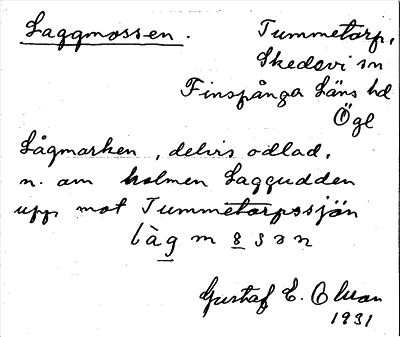 Laggmossen.
Tummetorp,
Skedevi sn
Finspånga Läns hd
Ögl
Lågmarken, delvis odlad,
n. om holmen Laggudden
upp mot Tummetorpssjön
Gustaf E. Olsson
1931